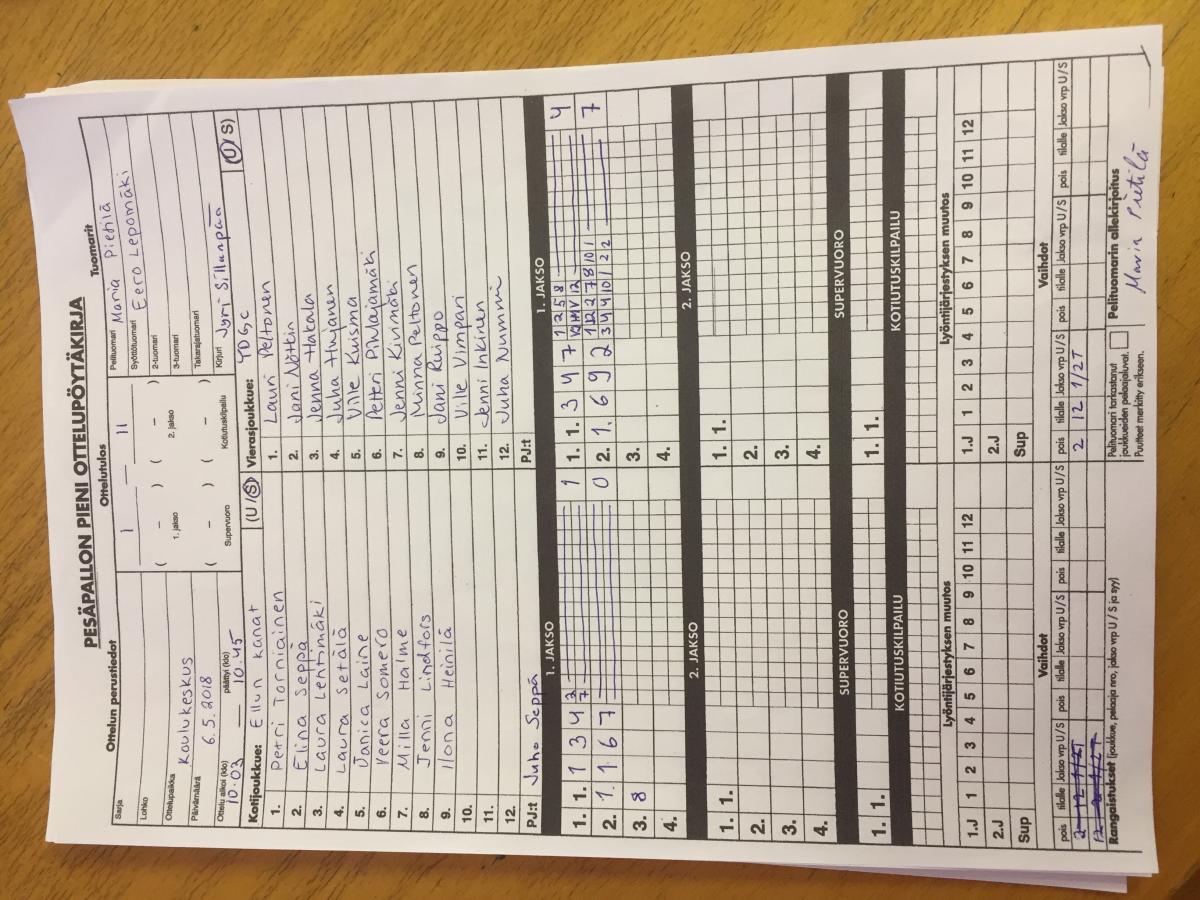 PESÄPALLON PIENI OTTELUPÖYTÄKIRJA
Ottelun perustiedot
Ottelutulos
Tuomarit
Sarja
1 11
Pelituomari Maria Pietilä
Lohko
( – ) ( – )
1. jakso 2. jakso
Syöttötuomari Eero Lepomäki
Ottelupaikka Koulukeskus
2-tuomari
3-tuomari
Päivämäärä 6.5.2018
( – ) ( – )
Supervuoro Kotiutuskilpailu
Takarajatuomari
Ottelu alkoi (klo) 10.03 — päättyi (klo) 10.45
Kirjuri Jyri Sillanpää
Kotijoukkue: Ellun Kanat (U/S)
1. Petri Torniainen
2. Elina Seppä
3. Laura Lehtimäki
4. Laura Setälä
5. Janica Laine
6. Veera Somero
7. Milla Halme
8. Jenni Lindfors
9. Ilona Heinilä
10.
11.
12.
PJ:t Juho Seppä
Vierasjoukkue: (U/S)
1. Lauri Peltonen
2. Jani Nätkin
3. Jenna Hakala
4. Juha Hujanen
5. Ville Kuisma
6. Petteri Pihlajamäki
7. Jenni Kivimäki
8. Minna Peltonen
9. Jani Ruippo
10. Ville Vimpari
11. Jenni Inkinen
12. Juha Nummi
PJ:t
1. JAKSO 1. JAKSO
1. 1. 1 3 4 3 7 1
2. 1. 1 6 7 0
3. 8
4.
1. 1. 3 4 7 1 2 5 8 4
2. 1. 6 9 2 7
3.
4.
2. JAKSO 2. JAKSO
1. 1. 1. 1.
2. 2.
3. 3.
4. 4.
SUPERVUORO SUPERVUORO
1. 1. 1. 1.
KOTIUTUSKILPAILU KOTIUTUSKILPAILU
Lyöntijärjestyksen muutos Lyöntijärjestyksen muutos
1.J 1 2 3 4 5 6 7 8 9 10 11 12 1.J 1 2 3 4 5 6 7 8 9 10 11 12
2.J 2.J
Sup Sup
Vaihdot Vaihdot
pois tilalle Jakso vrp U/S pois tilalle Jakso vrp U/S pois tilalle Jakso vrp U/S pois tilalle Jakso vrp U/S pois tilalle Jakso vrp U/S pois tilalle Jakso vrp U/S
2 12 1/2T 2 12 1/2T
12 2 1/2T
Rangaistukset (joukkue, pelaaja nro, jakso vrp U / S ja syy)
Pelituomari tarkastanut
joukkueiden pelaajaluvat.
Puutteet merkitty erikseen.
Pelituomarin allekirjoitus
Maria Pietilä